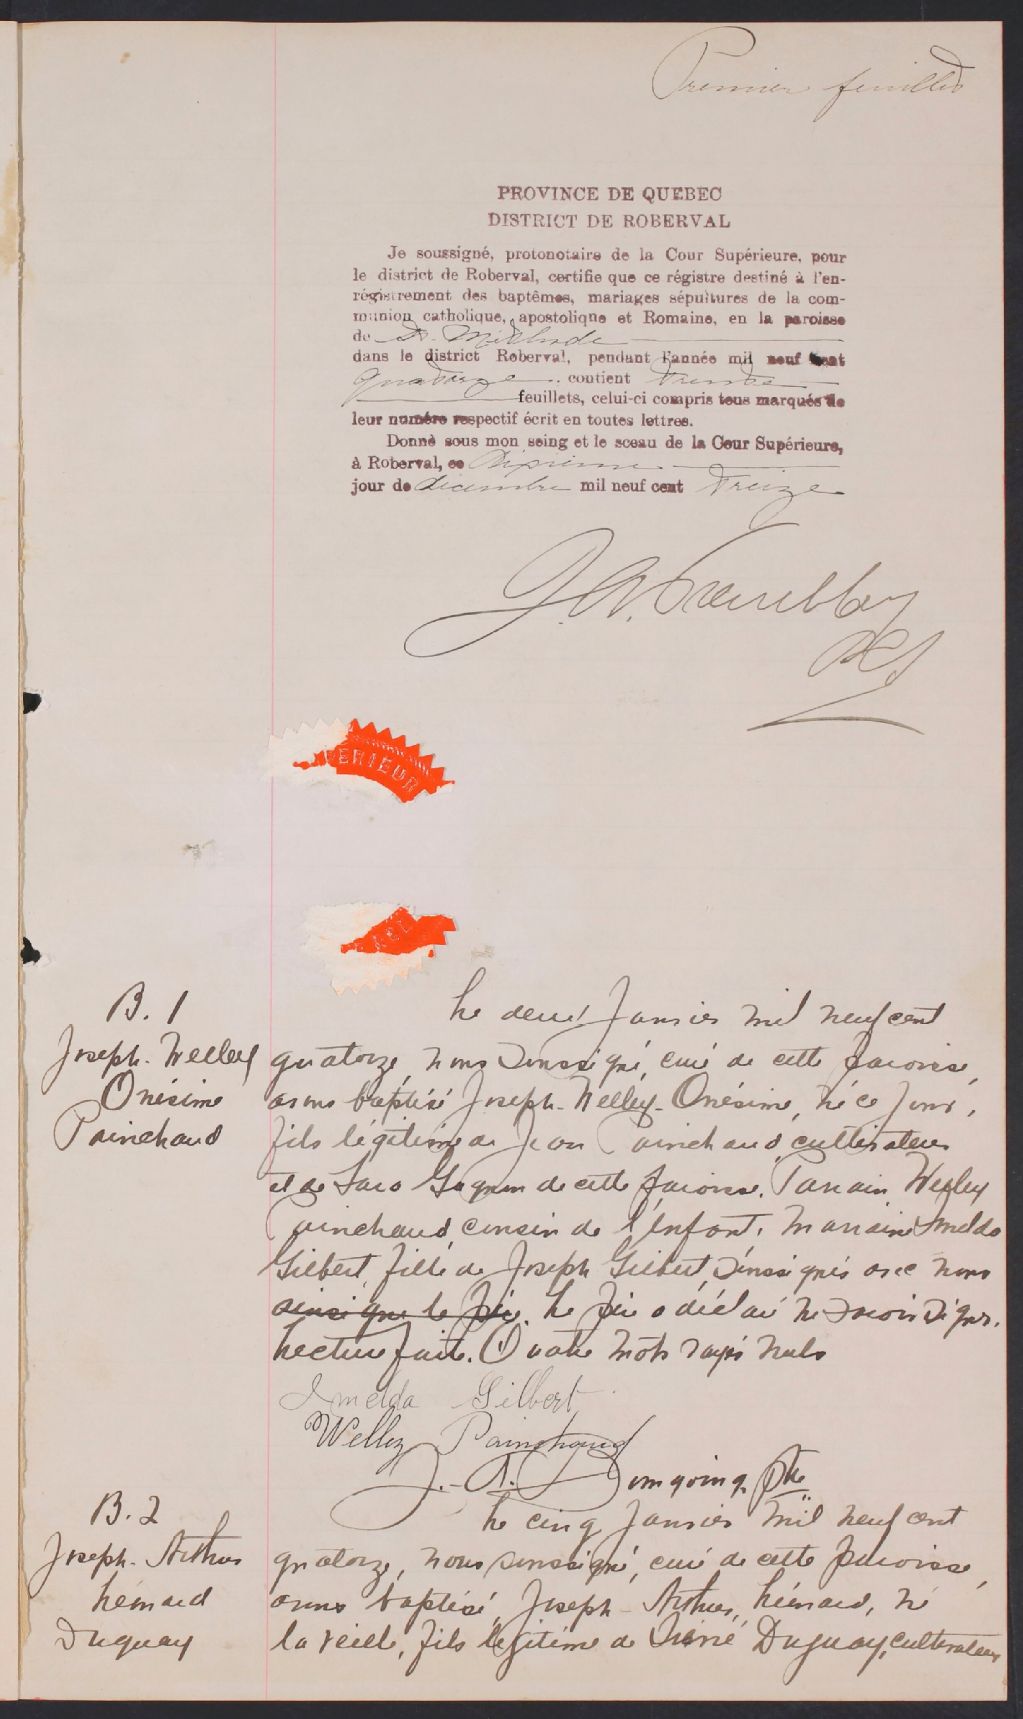 Premier feuillet
PROVINCE DE QUEBEC
DISTRICT DE ROBERVAL
Je soussigné, protonotaire de la Cour Supérieure, pour
le district de Roberval, certifie que ce régistre destiné à l'en-
régistrement des baptêmes, mariages sépultures de la com-
munion catholique, apostolique et Romaine, en la paroisse
de St. Méthode
dans le district Roberval, pendant l'année mil neuf cent
quatorze contient trente
feuillets, celui-ci compris tous marqués de
leur numéro respectif écrit en toutes lettres.
Donné sous mon seing et le sceau de la Cour Supérieure,
à Roberval, ce
jour de décembre mil neuf cent treize
Tremblay
PCS
PERIEUR
B. 1
Joseph-Welley
Onésime
Painchaud
Le deux Janvier mil neuf cent
quatorze, nous soussigné, curé de cette paroisse,
avons baptisé Joseph-Welley-Onésime, né ce jour,
fils légitime de Jean Painchaud, cultivateur
et de Gagnon de cette paroisse. Parrain Welley
Painchaud, cousin de l'enfant, marraine Imelda
Gilbert, fille de Joseph Gilbert, soussignés avec nous
ainsi que le père. Le père a déclaré ne savoir signer.
Lecture faite. Quatre mots rayés nuls
Imelda Gilbert
Welley Painchaud
ptre
B. 2
Joseph-Arthur
Léonard
Duguay
Le cinq Janvier mil neuf cent
quatorze, nous soussigné, curé de cette paroisse,
avons baptisé, Joseph-Arthur, Léonard, né
la veille, fils légitime de Duguay, cultivateur